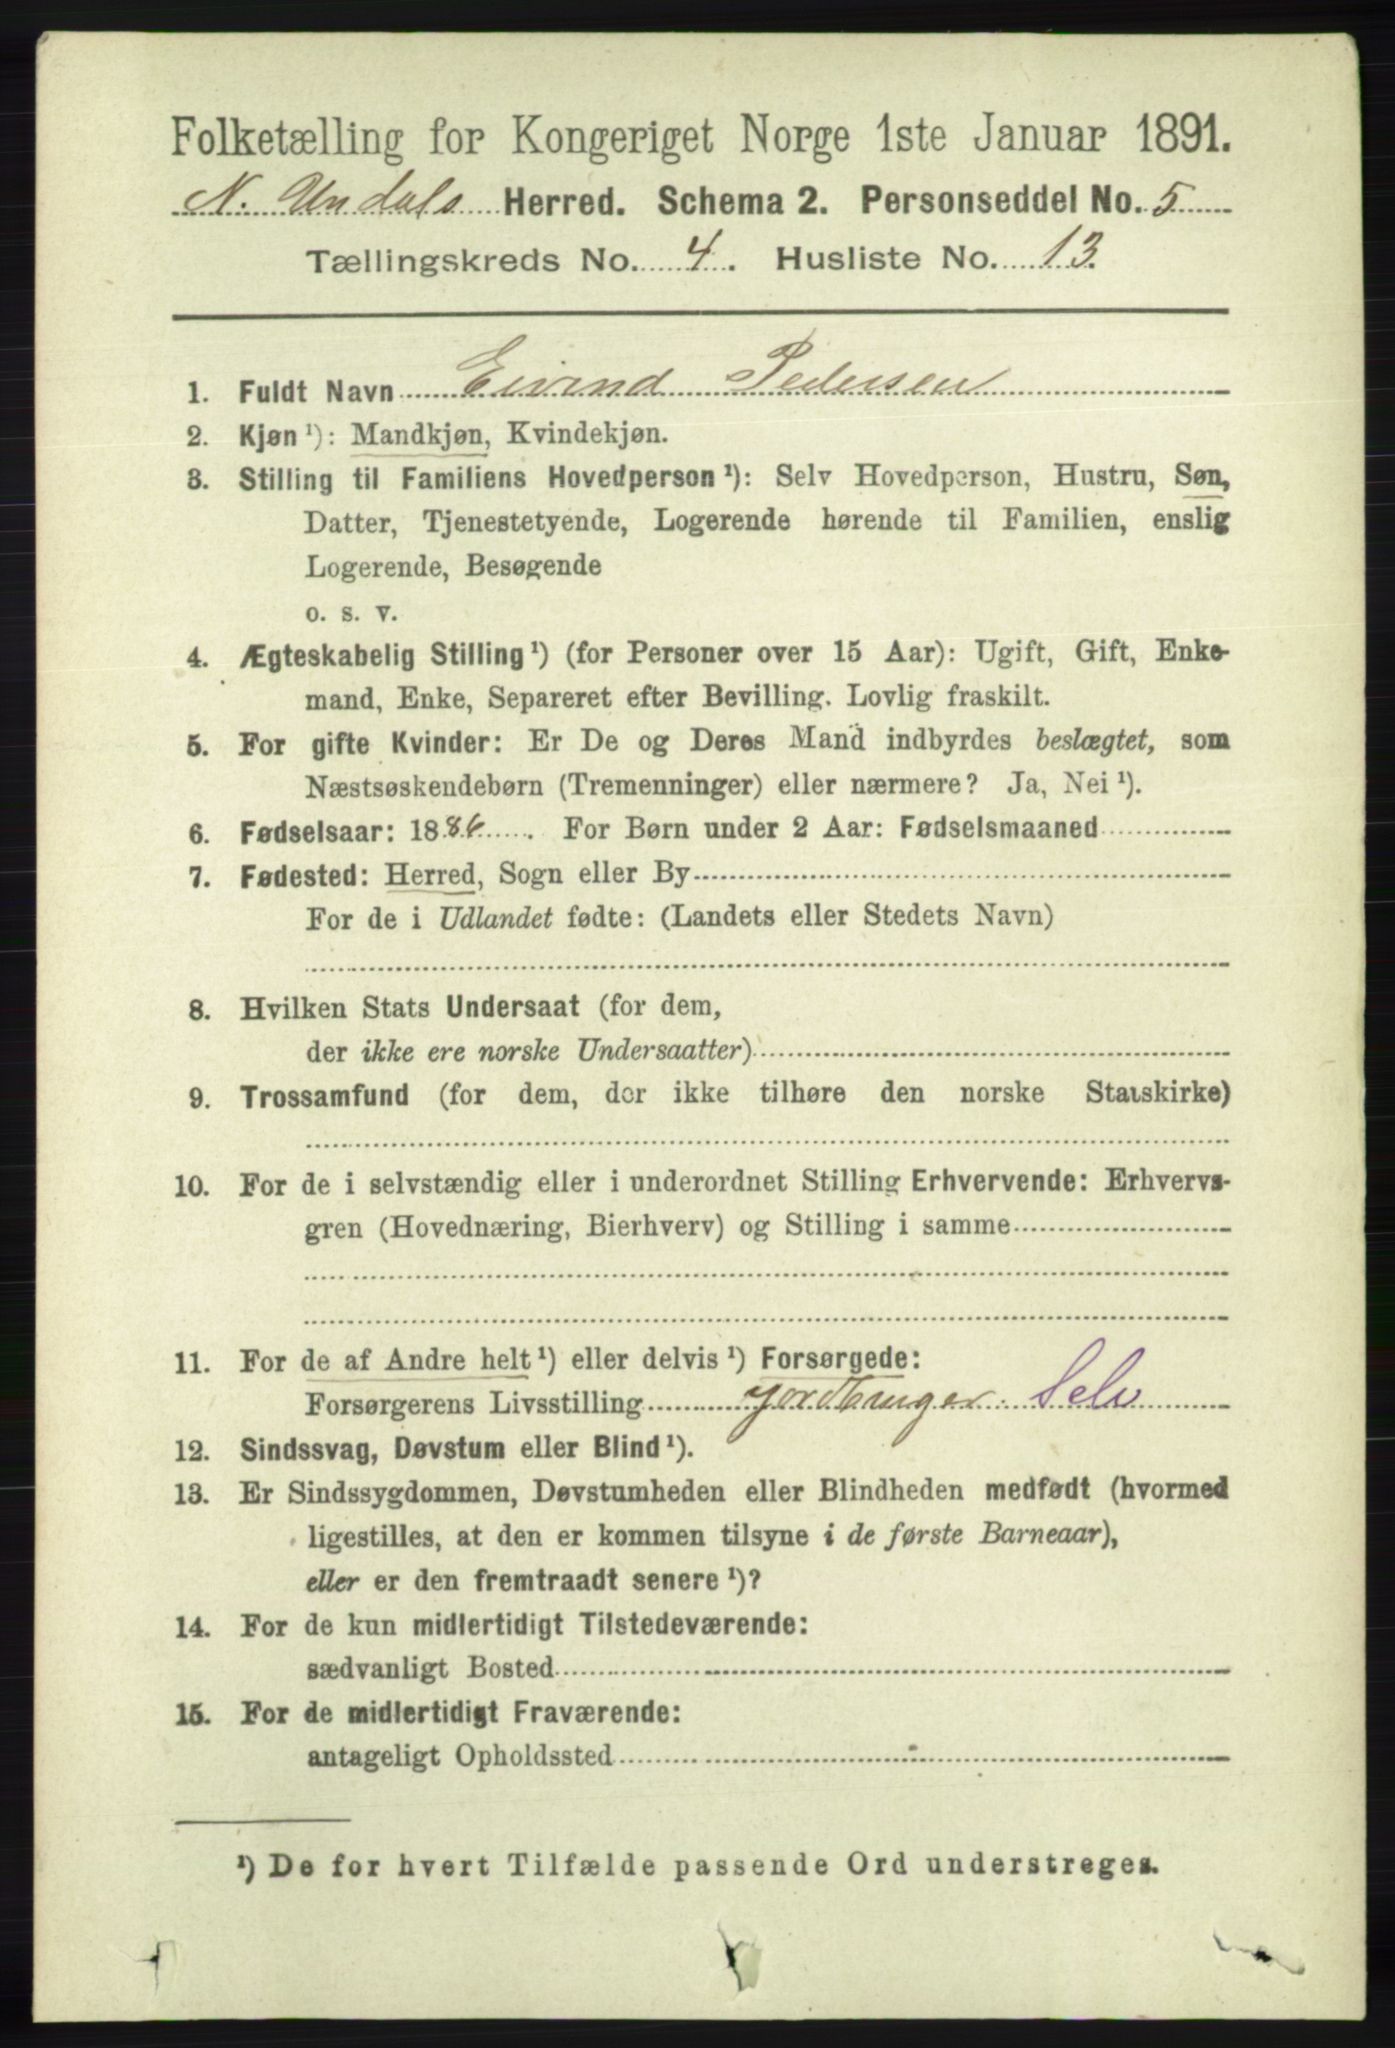 Folketælling for Kongeriget Norge 1ste Januar 1891.
N. Undals Herred. Schema 2. Personseddel No. 5
Tællingskreds No. 4. Husliste No. 13.
1. Fuldt Navn Eivind Pedersen
2. Kjøn ¹): Mandkjøn, Kvindekjøn.
3. Stilling til Familiens Hovedperson ¹): Selv Hovedperson, Hustru, Søn,
Datter, Tjenestetyende, Logerende hørende til Familien, enslig
Logerende, Besøgende
o. s. v.
4. Ægteskabelig Stilling ¹) (for Personer over 15 Aar): Ugift, Gift, Enke-
mand, Enke, Separeret efter Bevilling. Lovlig fraskilt.
5. For gifte Kvinder: Er De og Deres Mand indbyrdes beslægtet, som
Næstsøskendebørn (Tremenninger) eller nærmere? Ja, Nei ¹).
6. Fødselsaar: 1886. For Børn under 2 Aar: Fødselsmaaned
7. Fødested: Herred, Sogn eller By
For de i Udlandet fødte: (Landets eller Stedets Navn)
8. Hvilken Stats Undersaat (for dem,
der ikke ere norske Undersaatter)
9. Trossamfund (for dem, der ikke tilhøre den norske Statskirke)
10. For de i selvstændig eller i underordnet Stilling Erhvervende: Erhvervs-
gren (Hovednæring, Bierhverv) og Stilling i samme
11. For de af Andre helt ¹) eller delvis ¹) Forsørgede:
Forsørgerens Livsstilling Jordbruger. Selv
12. Sindssvag, Døvstum eller Blind ¹).
13. Er Sindssygdommen, Døvstumheden eller Blindheden medfødt (hvormed
ligestilles, at den er kommen tilsyne i de første Barneaar),
eller er den fremtraadt senere ¹)?
14. For de kun midlertidigt Tilstedeværende:
sædvanligt Bosted
15. For de midlertidigt Fraværende:
antageligt Opholdssted
¹) De for hvert Tilfælde passende Ord understreges.